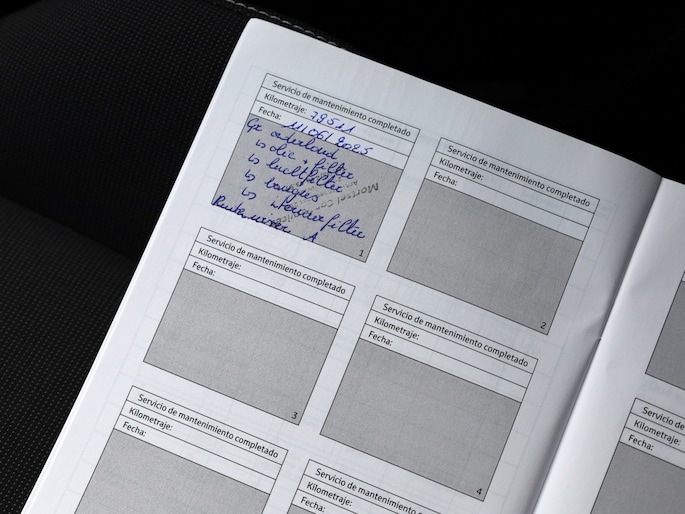 Servicio de mantenimiento completado
Kilometraje: 78511
Fecha: 11/06/2025
onderhoud
↳ olie + filter
↳ luchtfilter
↳ bougies
↳ interieurfilter
Ruitenwisser
1
Servicio de mantenimiento completado
Kilometraje:
Fecha:
2
Servicio de mantenimiento completado
Kilometraje:
Fecha:
3
Servicio de mantenimiento completado
Kilometraje:
Fecha:
4
Servicio de mantenimiento completado
Kilometraje:
Fecha:
Servicio de mantenimiento completado
Kilometraje:
Fecha:
Kilometraje:
Fecha: